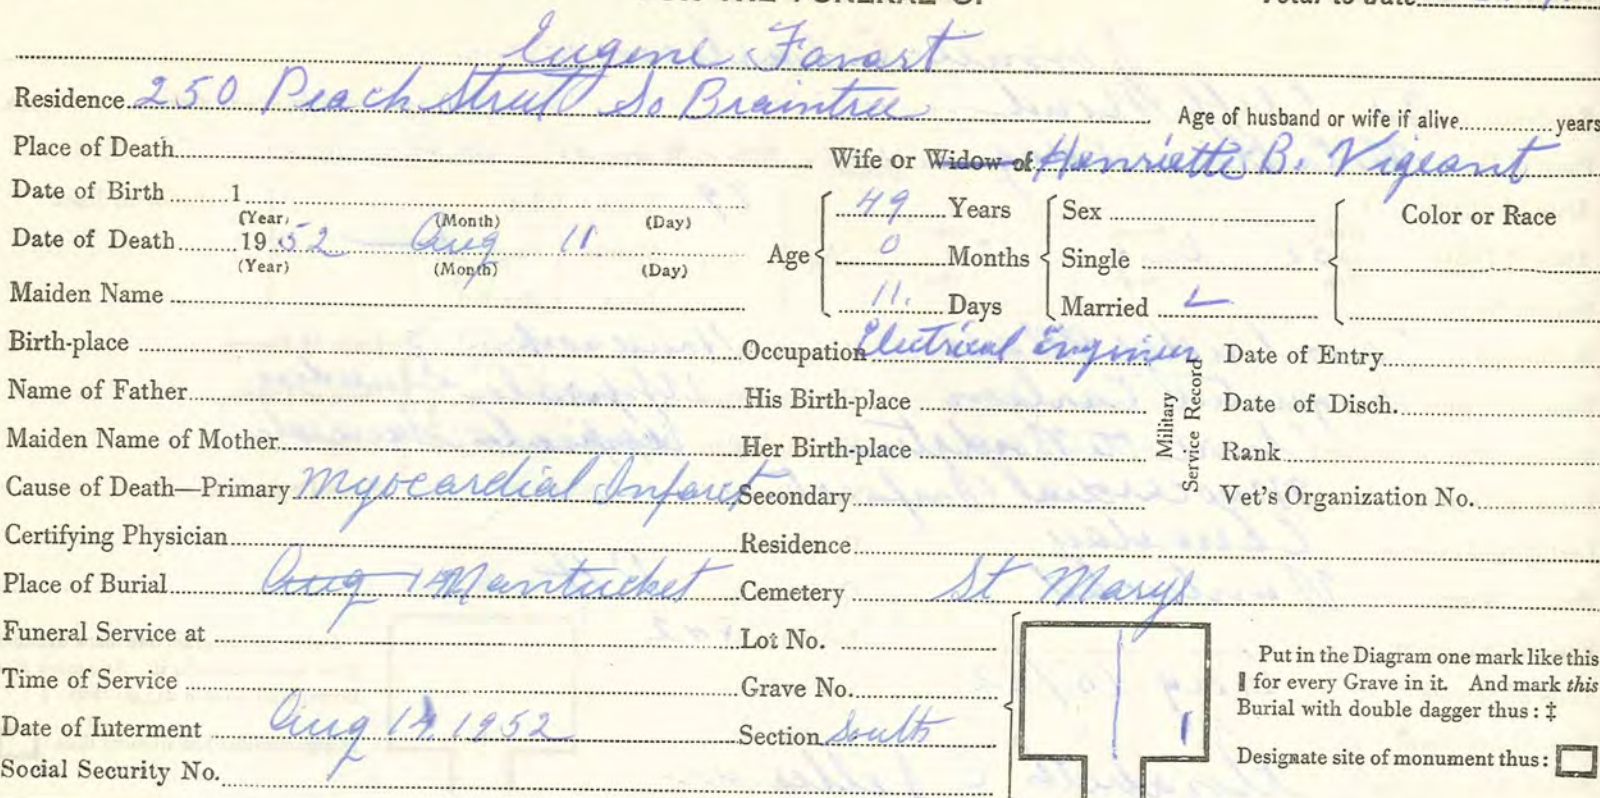 FOR THE FUNERAL OF
Total to Date
Eugene Favart
Residence 250 Peach Street So Braintree Age of husband or wife if alive years
Place of Death Wife or Widow of Henriette B. Vigeant
Date of Birth 1
(Year) (Month) (Day)
Date of Death 1952 Aug 11
(Year) (Month) (Day)
Maiden Name
Age 49 Years 0 Months 11. Days
Sex
Single
Married ✓
Color or Race
Birth-place Occupation Electrical Engineer
Name of Father His Birth-place
Maiden Name of Mother Her Birth-place
Military Service Record
Date of Entry
Date of Disch.
Rank
Vet's Organization No.
Cause of Death—Primary Myocardial Infarct Secondary
Certifying Physician Residence
Place of Burial Aug 14 Nantucket Cemetery St Marys
Funeral Service at Lot No.
Time of Service Grave No.
Date of Interment Aug 14 1952 Section South
Social Security No.
Put in the Diagram one mark like this
for every Grave in it. And mark this
Burial with double dagger thus: ‡
Designate site of monument thus: